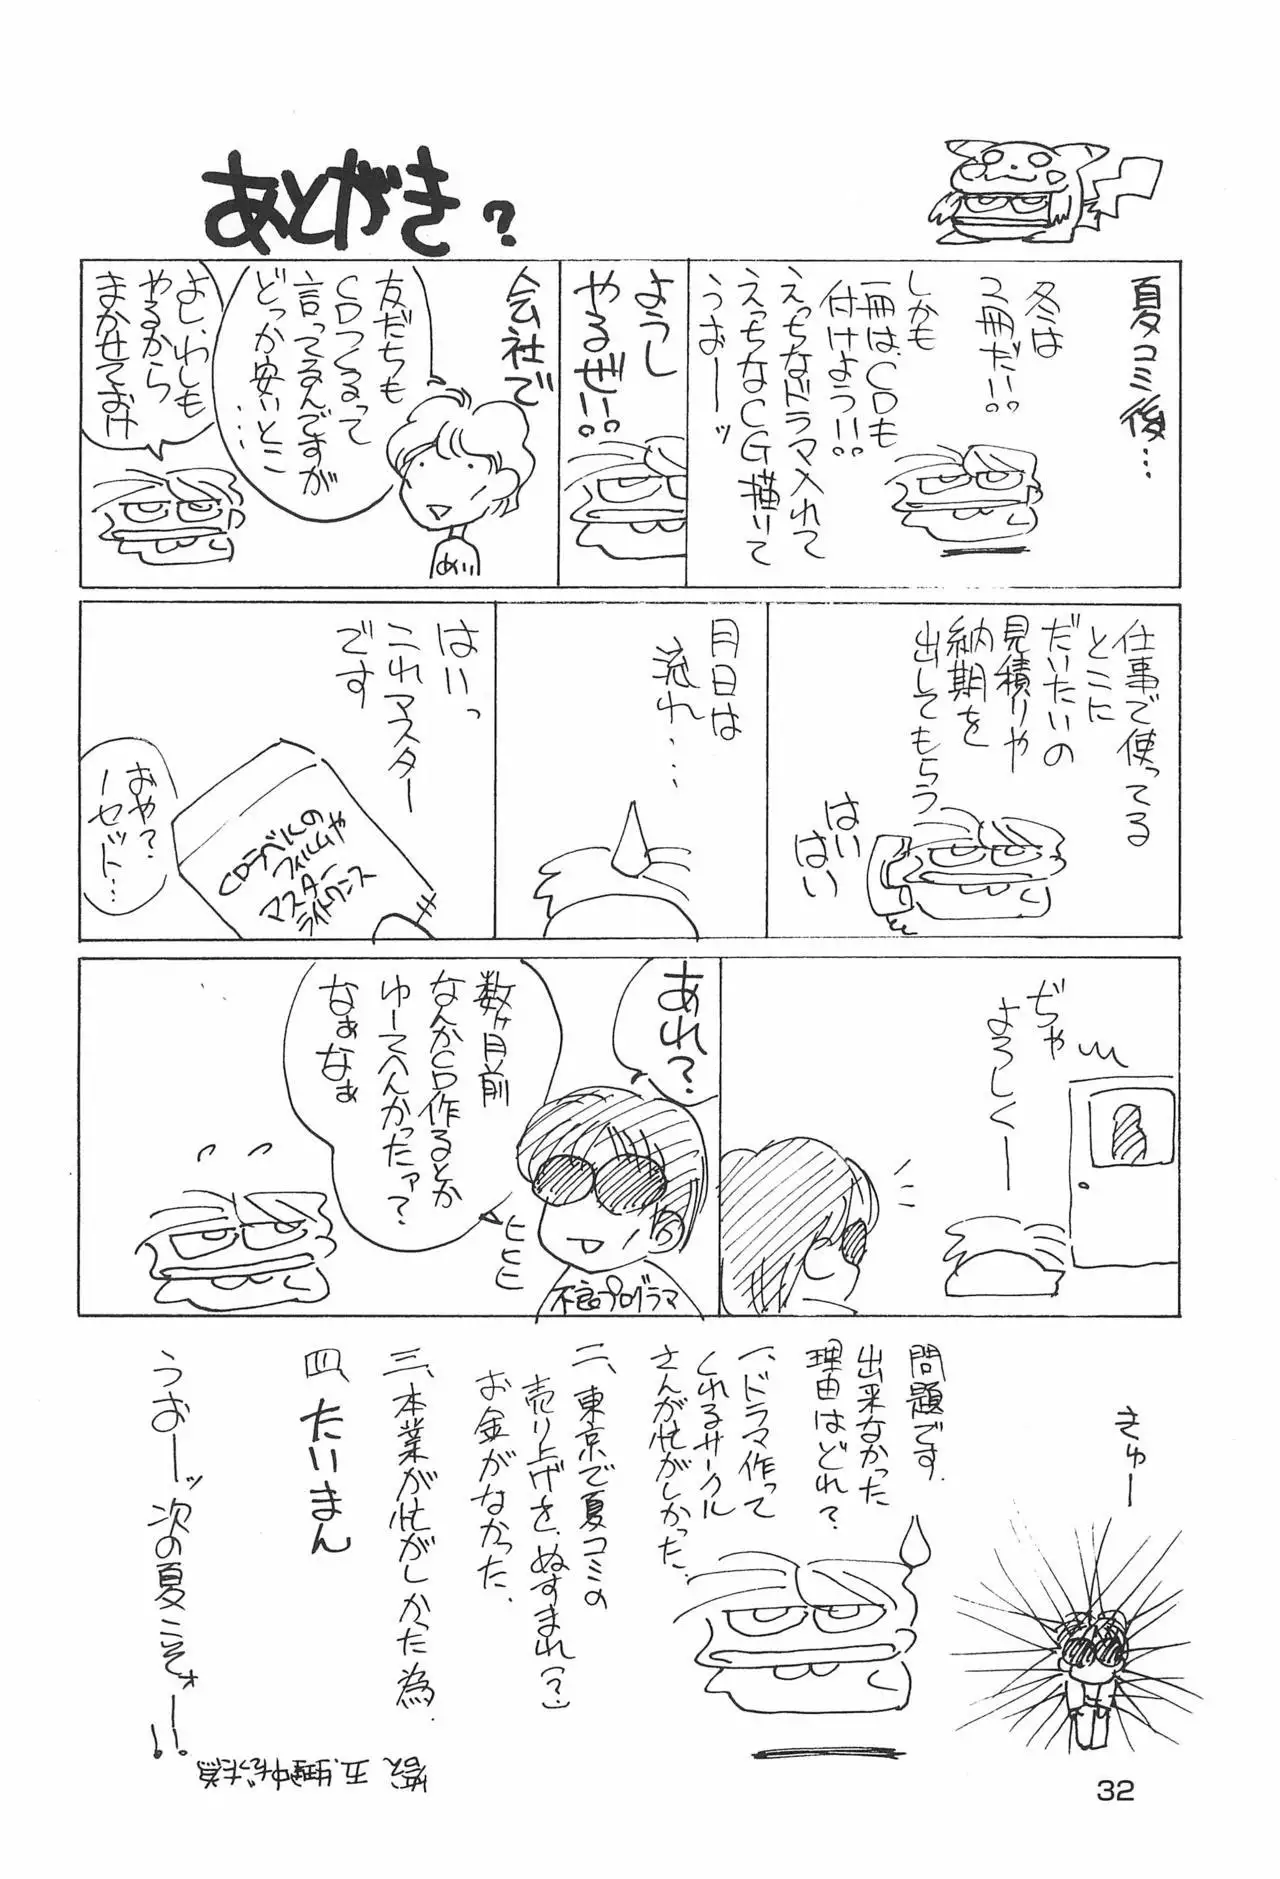 あとがき?
夏コミ後…
冬は
2冊だ!!。
しかも
一冊は、CDも
付けよう!!。
えっちなドラマ入れて
えっちなCG描いて
うおーッ
ようし
やるぜ!!。
会社で
友だちも
CDつくるって
言ってるんですが
どっか安いとこ
……
めい
よし、わしも
やるから
まかせておけ
仕事で使ってる
とこに
だいたいの
見積りや
納期を
出してもらう
はい
はい
月日は
流れ…
はいっ
これマスター
です
CDラベルの
フィルムや
マスター
おや?
一セット…
ぢゃ
よろしくー
あれ?
数ヶ月前
なんかCD作るとか
ゆーてへんかったァ?
なぁなぁ
ヒヒヒ
不良プログラマ
きゅー
問題です.
出来なかった
理由はどれ?
一、ドラマ作って
くれるサークル
さんが忙がしかった.
二、東京で夏コミの
売り上げを、ぬすまれ(?)
お金がなかった.
三、本業が忙がしかった為.
四、たいまん
うおーッ次の夏こそォー!!
32